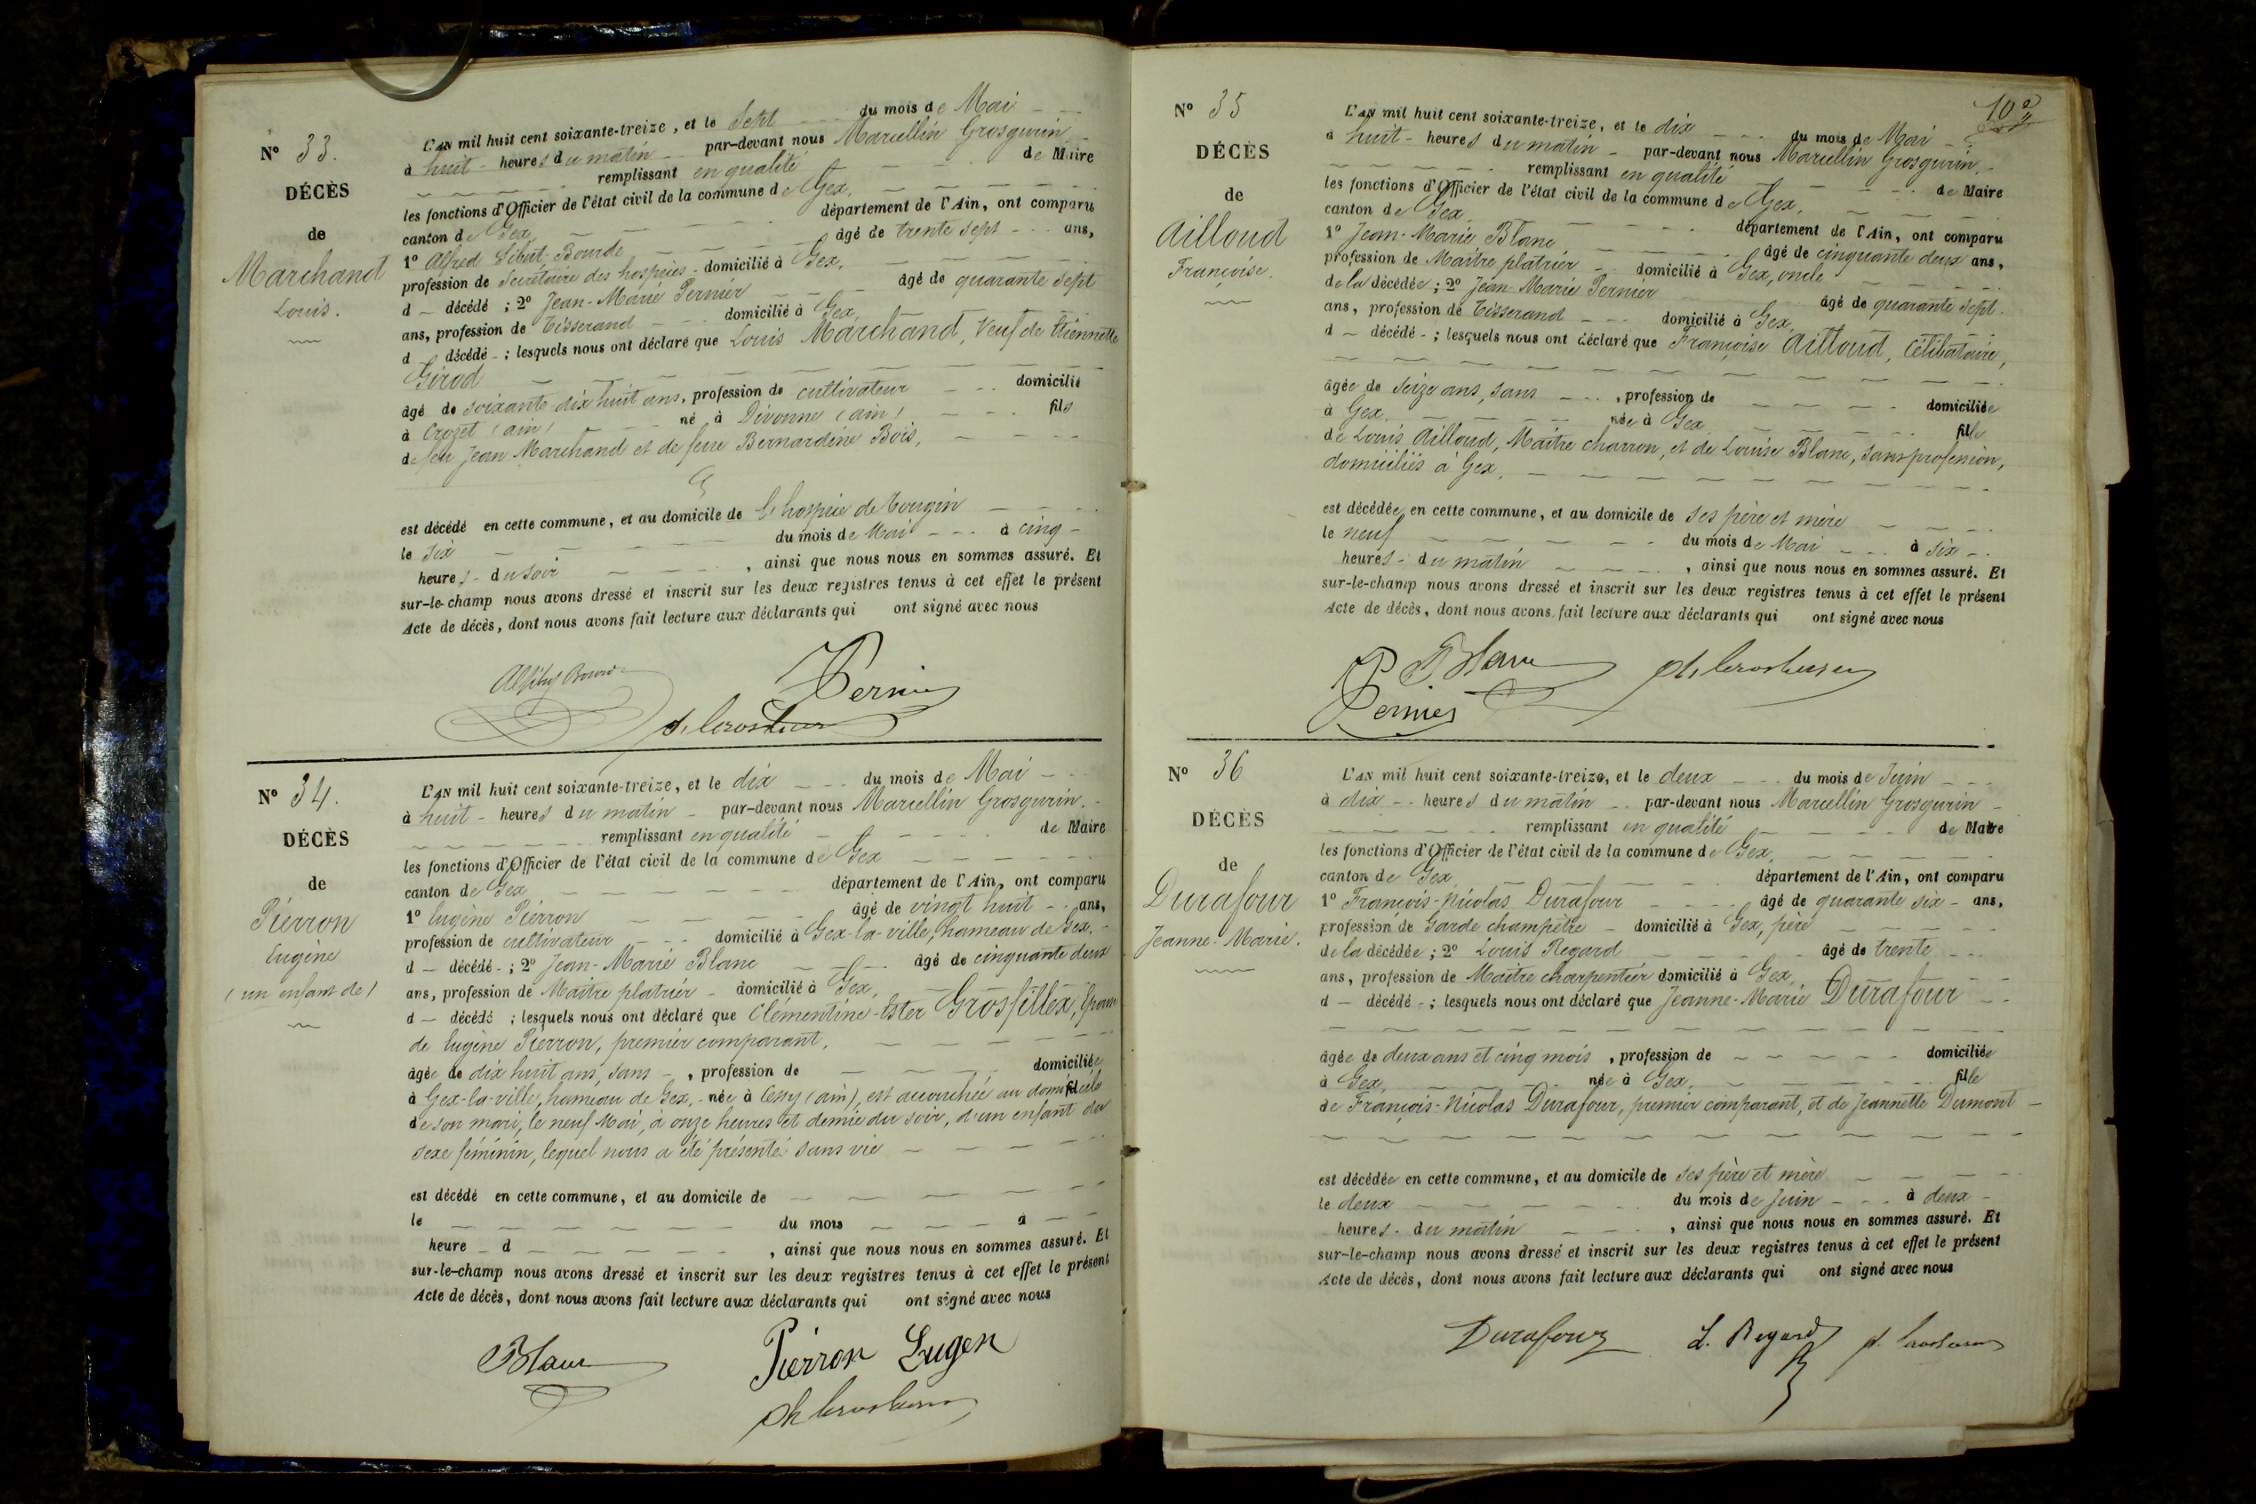 N° 33.
DÉCÈS
de
Marchand
Louis.
L'AN mil huit cent soixante-treize, et le Sept du mois de Mai
à huit heures du matin par-devant nous Marcellin Grosgurin
remplissant en qualité de Maire
les fonctions d'Officier de l'état civil de la commune de Gex,
canton de Gex département de l'Ain, ont comparu
1° Alfred Sibut-Bourde âgé de trente sept ans,
profession de Secrétaire des hospices domicilié à Gex,
d décédé ; 2° Jean-Marie Pernier âgé de quarante sept
ans, profession de Tisserand domicilié à Gex,
d décédé ; lesquels nous ont déclaré que Louis Marchand, Veuf de Etiennette
Girod
âgé de soixante-dix huit ans, profession de cultivateur domicilié
à Crozet (ain) né à Divonne (ain) fils
de feu Jean Marchand et de feue Bernardine Bois,
est décédé en cette commune, et au domicile de l'hospice de Tougin
le six du mois de Mai à cinq
heures du soir , ainsi que nous nous en sommes assuré. Et
sur-le-champ nous avons dressé et inscrit sur les deux registres tenus à cet effet le présent
Acte de décès, dont nous avons fait lecture aux déclarants qui ont signé avec nous
Pernier
N° 34.
DÉCÈS
de
Pierron
Eugène
(un enfant de)
L'AN mil huit cent soixante-treize, et le dix du mois de Mai
à huit heures du matin par-devant nous Marcellin Grosgurin.
remplissant en qualité de Maire
les fonctions d'Officier de l'état civil de la commune de Gex
canton de Gex département de l'Ain, ont comparu
1° Eugène Pierron âgé de vingt huit ans,
profession de cultivateur domicilié à Gex-la-ville, hameau de Gex.
d décédé ; 2° Jean-Marie Blanc âgé de cinquante deux
ans, profession de Maître platrier domicilié à Gex,
d décédé ; lesquels nous ont déclaré que Clémentine-Ester Grosfillex, Épouse
de Eugène Pierron, premier comparant,
âgée de dix huit ans, sans , profession de domiciliée
à Gex-la-ville, hameau de Gex, née à Cessy (ain), est accouchée au domicile
de son mari, le neuf Mai, à onze heures et demie du soir, d'un enfant du
sexe féminin, lequel nous a été présenté sans vie
est décédé en cette commune, et au domicile de
le du mois à
heure d , ainsi que nous nous en sommes assuré. Et
sur-le-champ nous avons dressé et inscrit sur les deux registres tenus à cet effet le présent
Acte de décès, dont nous avons fait lecture aux déclarants qui ont signé avec nous
Blanc Pierron Eugen
N° 35
DÉCÈS
de
Ailloud
Françoise.
L'AN mil huit cent soixante-treize, et le dix du mois de Mai
à huit heures du matin par-devant nous Marcellin Grosgurin.
remplissant en qualité de Maire
les fonctions d'Officier de l'état civil de la commune de Gex,
canton de Gex département de l'Ain, ont comparu
1° Jean-Marie Blanc âgé de cinquante deux ans,
profession de Maître platrier domicilié à Gex, oncle
de la décédée ; 2° Jean-Marie Pernier âgé de quarante sept
ans, profession de Tisserand domicilié à Gex
d décédé ; lesquels nous ont déclaré que Françoise Ailloud, Célibataire,
âgée de seize ans, sans , profession de domiciliée
à Gex née à Gex fille
de Louis Ailloud, Maître charron, et de Louise Blanc, sans profession,
domiciliés à Gex,
est décédée en cette commune, et au domicile de ses père et mère
le neuf du mois de Mai à six
heures du matin , ainsi que nous nous en sommes assuré. Et
sur-le-champ nous avons dressé et inscrit sur les deux registres tenus à cet effet le présent
Acte de décès, dont nous avons fait lecture aux déclarants qui ont signé avec nous
Blanc
Pernier
N° 36
DÉCÈS
de
Durafour
Jeanne-Marie.
L'AN mil huit cent soixante-treize, et le deux du mois de Juin
à dix heures du matin par-devant nous Marcellin Grosgurin
remplissant en qualité de Maire
les fonctions d'Officier de l'état civil de la commune de Gex,
canton de Gex département de l'Ain, ont comparu
1° François-Nicolas Durafour âgé de quarante six ans,
profession de Garde champêtre domicilié à Gex, père
de la décédée ; 2° Louis Regard âgé de trente
ans, profession de Maître charpentier domicilié à Gex,
d décédé ; lesquels nous ont déclaré que Jeanne-Marie Durafour
âgée de deux ans et cinq mois , profession de domiciliée
à Gex, née à Gex, fille
de François-Nicolas Durafour, premier comparant, et de Jeannette Dumont
est décédée en cette commune, et au domicile de ses père et mère
le deux du mois de Juin à deux
heures du matin , ainsi que nous nous en sommes assuré. Et
sur-le-champ nous avons dressé et inscrit sur les deux registres tenus à cet effet le présent
Acte de décès, dont nous avons fait lecture aux déclarants qui ont signé avec nous
Durafour L. Regard